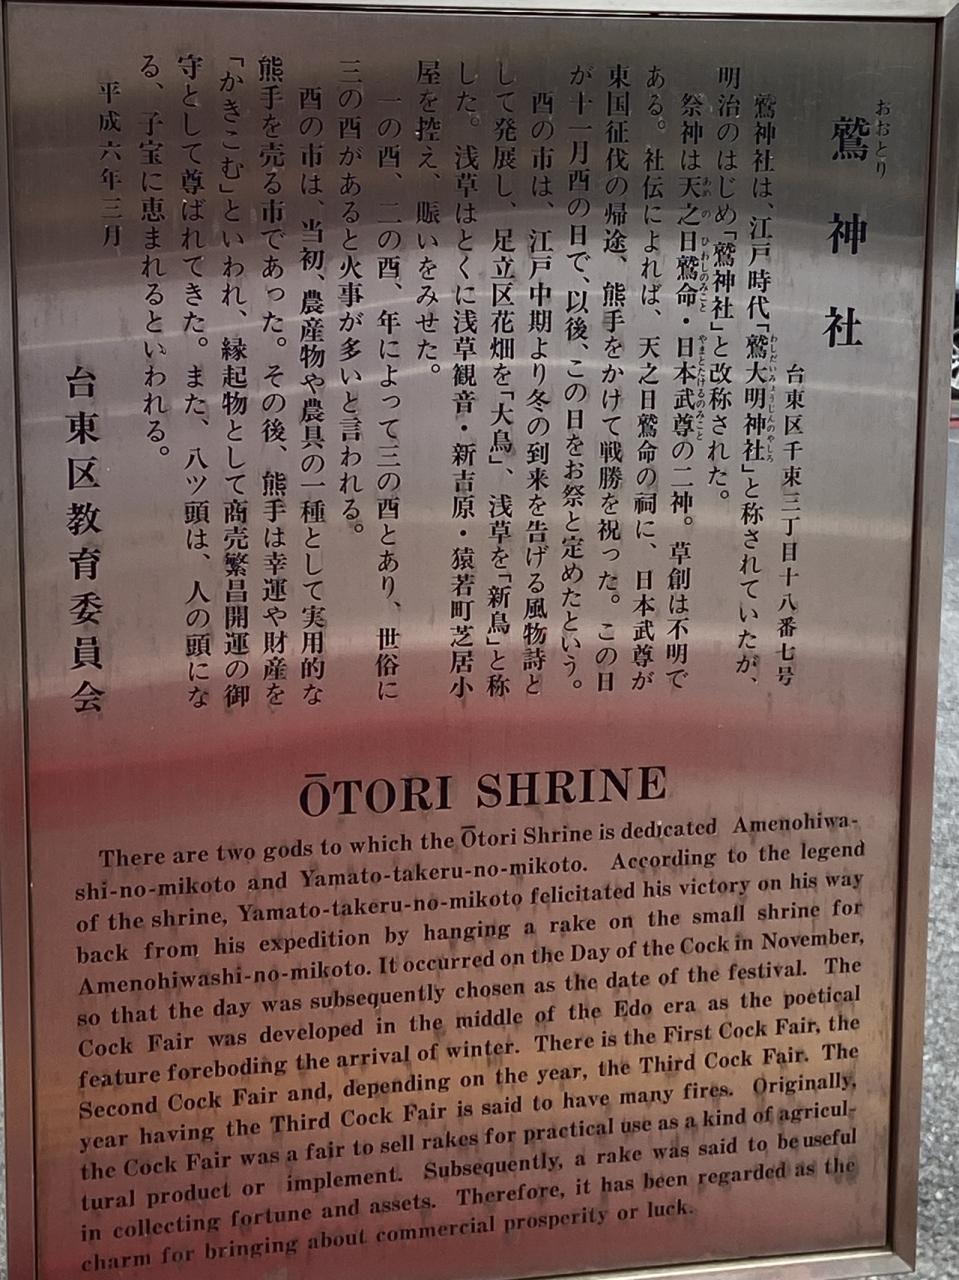 おおとり
鷲神社
台東区千束三丁目十八番七号
鷲神社は、江戸時代「鷲大明神社」と称されていたが、
わしだいみょうじんのやしろ
明治のはじめ「鷲神社」と改称された。
祭神は天之日鷲命・日本武尊の二神。草創は不明で
あめの ひわしのみこと やまとたけるのみこと
ある。社伝によれば、天之日鷲命の祠に、日本武尊が
東国征伐の帰途、熊手をかけて戦勝を祝った。この日
が十一月酉の日で、以後、この日をお祭と定めたという。
酉の市は、江戸中期より冬の到来を告げる風物詩と
して発展し、足立区花畑を「大鳥」、浅草を「新鳥」と称
した。浅草はとくに浅草観音・新吉原・猿若町芝居小
屋を控え、賑いをみせた。
一の酉、二の酉、年によって三の酉とあり、世俗に
三の酉があると火事が多いと言われる。
酉の市は、当初、農産物や農具の一種として実用的な
熊手を売る市であった。その後、熊手は幸運や財産を
「かきこむ」といわれ、縁起物として商売繁昌開運の御
守として尊ばれてきた。また、八ツ頭は、人の頭にな
る、子宝に恵まれるといわれる。
平成六年三月
台東区教育委員会
ŌTORI SHRINE
There are two gods to which the Ōtori Shrine is dedicated Amenohiwa-
shi-no-mikoto and Yamato-takeru-no-mikoto. According to the legend
of the shrine, Yamato-takeru-no-mikoto felicitated his victory on his way
back from his expedition by hanging a rake on the small shrine for
Amenohiwashi-no-mikoto. It occurred on the Day of the Cock in November,
so that the day was subsequently chosen as the date of the festival. The
Cock Fair was developed in the middle of the Edo era as the poetical
feature foreboding the arrival of winter. There is the First Cock Fair, the
Second Cock Fair and, depending on the year, the Third Cock Fair. The
year having the Third Cock Fair is said to have many fires. Originally,
the Cock Fair was a fair to sell rakes for practical use as a kind of agricul-
tural product or implement. Subsequently, a rake was said to be useful
in collecting fortune and assets. Therefore, it has been regarded as the
charm for bringing about commercial prosperity or luck.